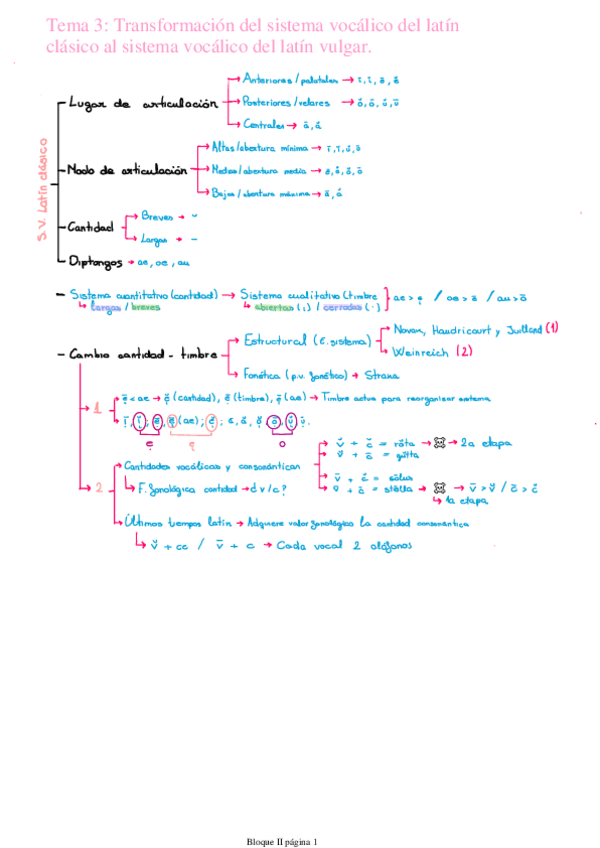 Tema 3: Transformación del sistema vocálico del latín
clásico al sistema vocálico del latín vulgar.
S.V. Latín clásico
Lugar de articulación
Anteriores / palatales → ī, ĭ, ē, ĕ
Posteriores / velares → ŏ, ō, ŭ, ū
Centrales → ā, ă
Modo de articulación
Altas / abertura mínima →
Medias / abertura media →
Bajas / abertura máxima → ā, ă
Cantidad
Breves → ˘
Largas → –
Diptongos → ae, oe, au
– Sistema cuantitativo (cantidad) → Sistema cualitativo (timbre
↳ largas / breves
↳ abiertas (˛) / cerradas (·)
ae > / oe > / au > ō
– Cambio cantidad - timbre
Estructural (E. sistema)
Novan, Haudricourt y Juilland (1)
Weinreich (2)
Fonética (p.v. fonético) → Straka
1
< ae → (cantidad), (timbre), (ae) → Timbre actua para reorganizar sistema
(ae);
ẹ
ę
o
2
Cantidades vocálicas y consonánticas
= rŏta → → 2a etapa
= gŭtta
= sōlus
= stēlla → →
↳ 1a etapa
↳ F. fonológica cantidad → d v/c?
Últimos tiempos latín → Adquiere valor fonológico la cantidad consonántica
↳ v̆ + cc / v̄ + c → Cada vocal 2 alófonos
Bloque II página 1